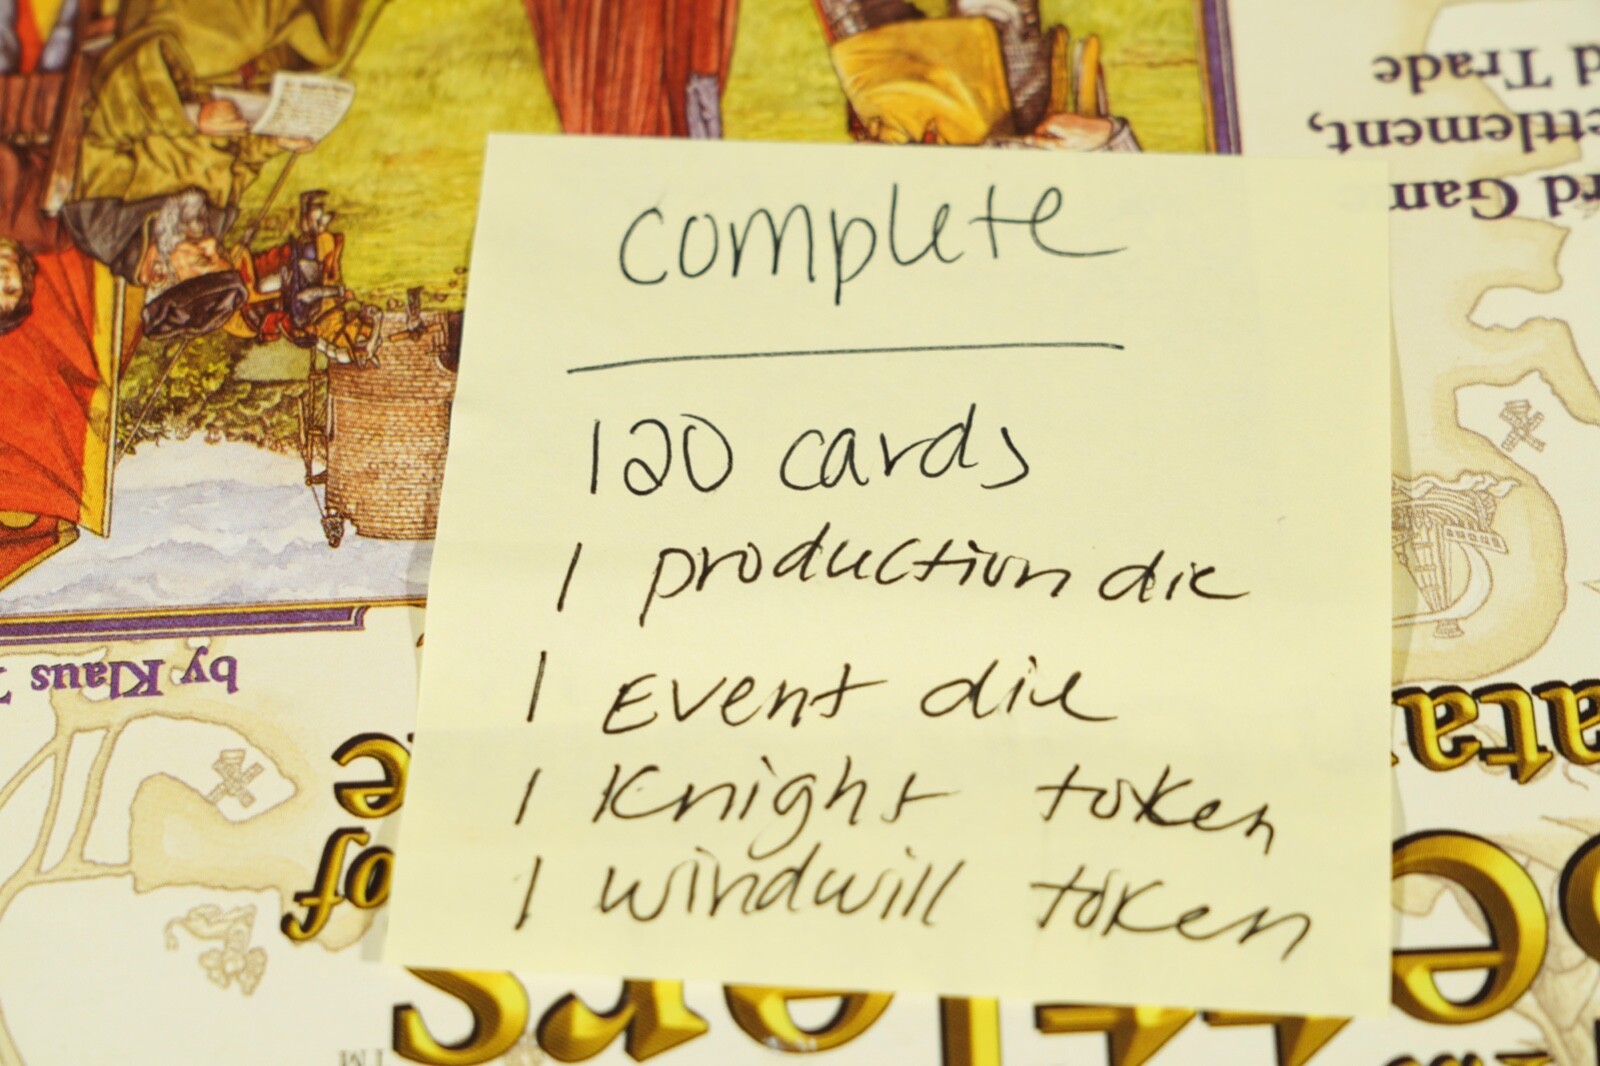 complete
120 cards
1 production die
1 Event die
1 Knight token
1 windwill token
d Trade
ettlement,
rd Gam
by Klaus
ata
of
ettlers
TM